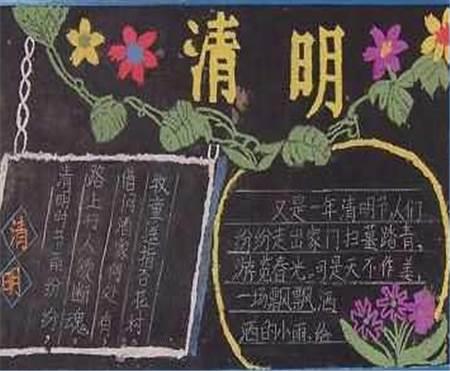 清明
清明
清明时节雨纷纷，
路上行人欲断魂。
借问酒家何处有，
牧童遥指杏花村。
又是一年清明节人们
纷纷走出家门扫墓踏青，
游览春光，可是天不作美，
一场飘飘洒
洒的小雨，给